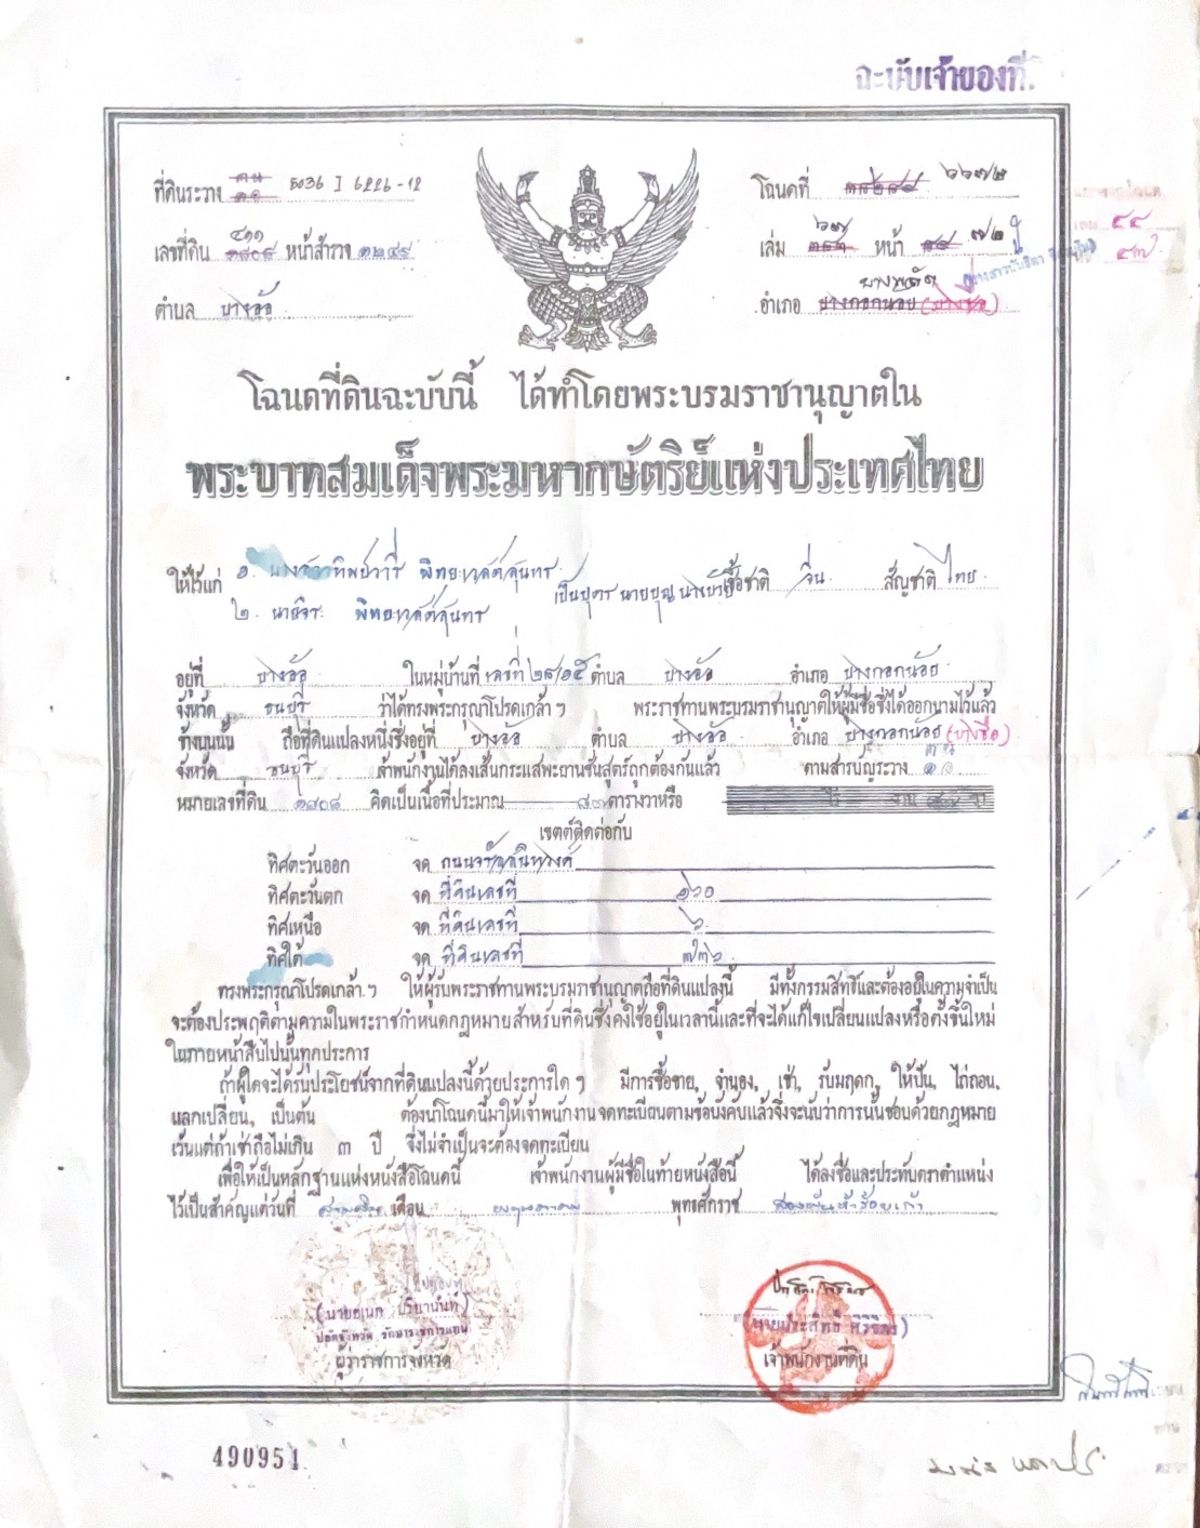 ฉะบับเจ้าของที่
ที่ดินระวาง 5036 I 6226-12
โฉนดที่ ๖๖๗๒
เลขที่ดิน ๔๑๑ หน้าสำรวจ ๑๒๔๙
เล่ม ๖๗ หน้า ๗๒
๕๔
๔๗
ตำบล บางอ้อ
อำเภอ บางพลัด บางกอกน้อย (บางซื่อ)
โฉนดที่ดินฉะบับนี้ ได้ทำโดยพระบรมราชานุญาตใน
พระบาทสมเด็จพระมหากษัตริย์แห่งประเทศไทย
ให้ไว้แก่ ๑. ทิพย์วารี พิทยะเวสด์สุนทร เชื้อชาติ จีน สัญชาติ ไทย
๒. พิทยะเวสด์สุนทร เป็นบุตร นายบุญ
อยู่ที่ บางอ้อ ในหมู่บ้านที่ เลขที่ ๒๘/๑๕ ตำบล บางอ้อ อำเภอ บางกอกน้อย
จังหวัด ธนบุรี ว่าได้ทรงพระกรุณาโปรดเกล้า ฯ พระราชทานพระบรมราชานุญาตให้ผู้มีชื่อซึ่งได้ออกนามไว้แล้ว
ข้างบนนั้น ถือที่ดินแปลงหนึ่งซึ่งอยู่ที่ บางอ้อ ตำบล บางอ้อ อำเภอ บางกอกน้อย (บางซื่อ)
จังหวัด ธนบุรี เจ้าพนักงานได้ลงเส้นกระแสพะยานชันสูตร์ถูกต้องกันแล้ว ตามสารบัญระวาง
หมายเลขที่ดิน ๑๘๐๘ คิดเป็นเนื้อที่ประมาณ ตารางวาหรือ
เขตต์ติดต่อกับ
ทิศตะวันออก จด ถนนจรัญสนิทวงศ์
ทิศตะวันตก จด ที่ดินเลขที่ ๑๖๐
ทิศเหนือ จด ที่ดินเลขที่ ๖
ทิศใต้ จด ที่ดินเลขที่ ๗๓๖
ทรงพระกรุณาโปรดเกล้า ฯ ให้ผู้รับพระราชทานพระบรมราชานุญาตถือที่ดินแปลงนี้ มีทั้งกรรมสิทธิ์และต้องอยู่ในความจำเป็น
จะต้องประพฤติตามความในพระราชกำหนดกฎหมายสำหรับที่ดินซึ่งคงใช้อยู่ในเวลานี้และที่จะได้แก้ไขเปลี่ยนแปลงหรือตั้งขึ้นใหม่
ในภายหน้าสืบไปนั้นทุกประการ
ถ้าผู้ใดจะได้รับประโยชน์จากที่ดินแปลงนี้ด้วยประการใด ๆ มีการซื้อขาย, จำนอง, เช่า, รับมฤดก, ให้ปัน, ไถ่ถอน,
แลกเปลี่ยน, เป็นต้น ต้องนำโฉนดนี้มาให้เจ้าพนักงานจดทะเบียนตามข้อบังคับแล้วจึ่งจะนับว่าการนั้นชอบด้วยกฎหมาย
เว้นแต่ถ้าเช่าถือไม่เกิน ๓ ปี จึ่งไม่จำเป็นจะต้องจดทะเบียน
เพื่อให้เป็นหลักฐานแห่งหนังสือโฉนดนี้ เจ้าพนักงานผู้มีชื่อในท้ายหนังสือนี้ ได้ลงชื่อและประทับตราตำแหน่ง
ไว้เป็นสำคัญแต่วันที่ สามสิบ เดือน พฤษภาคม พุทธศักราช สองพันห้าร้อยเก้า
(นายอเนก ปริยานนท์)
ปลัดจังหวัด รักษาราชการแทน
ผู้ว่าราชการจังหวัด
(นายประสิทธิ์ ศิริจิตร)
เจ้าพนักงานที่ดิน
490951